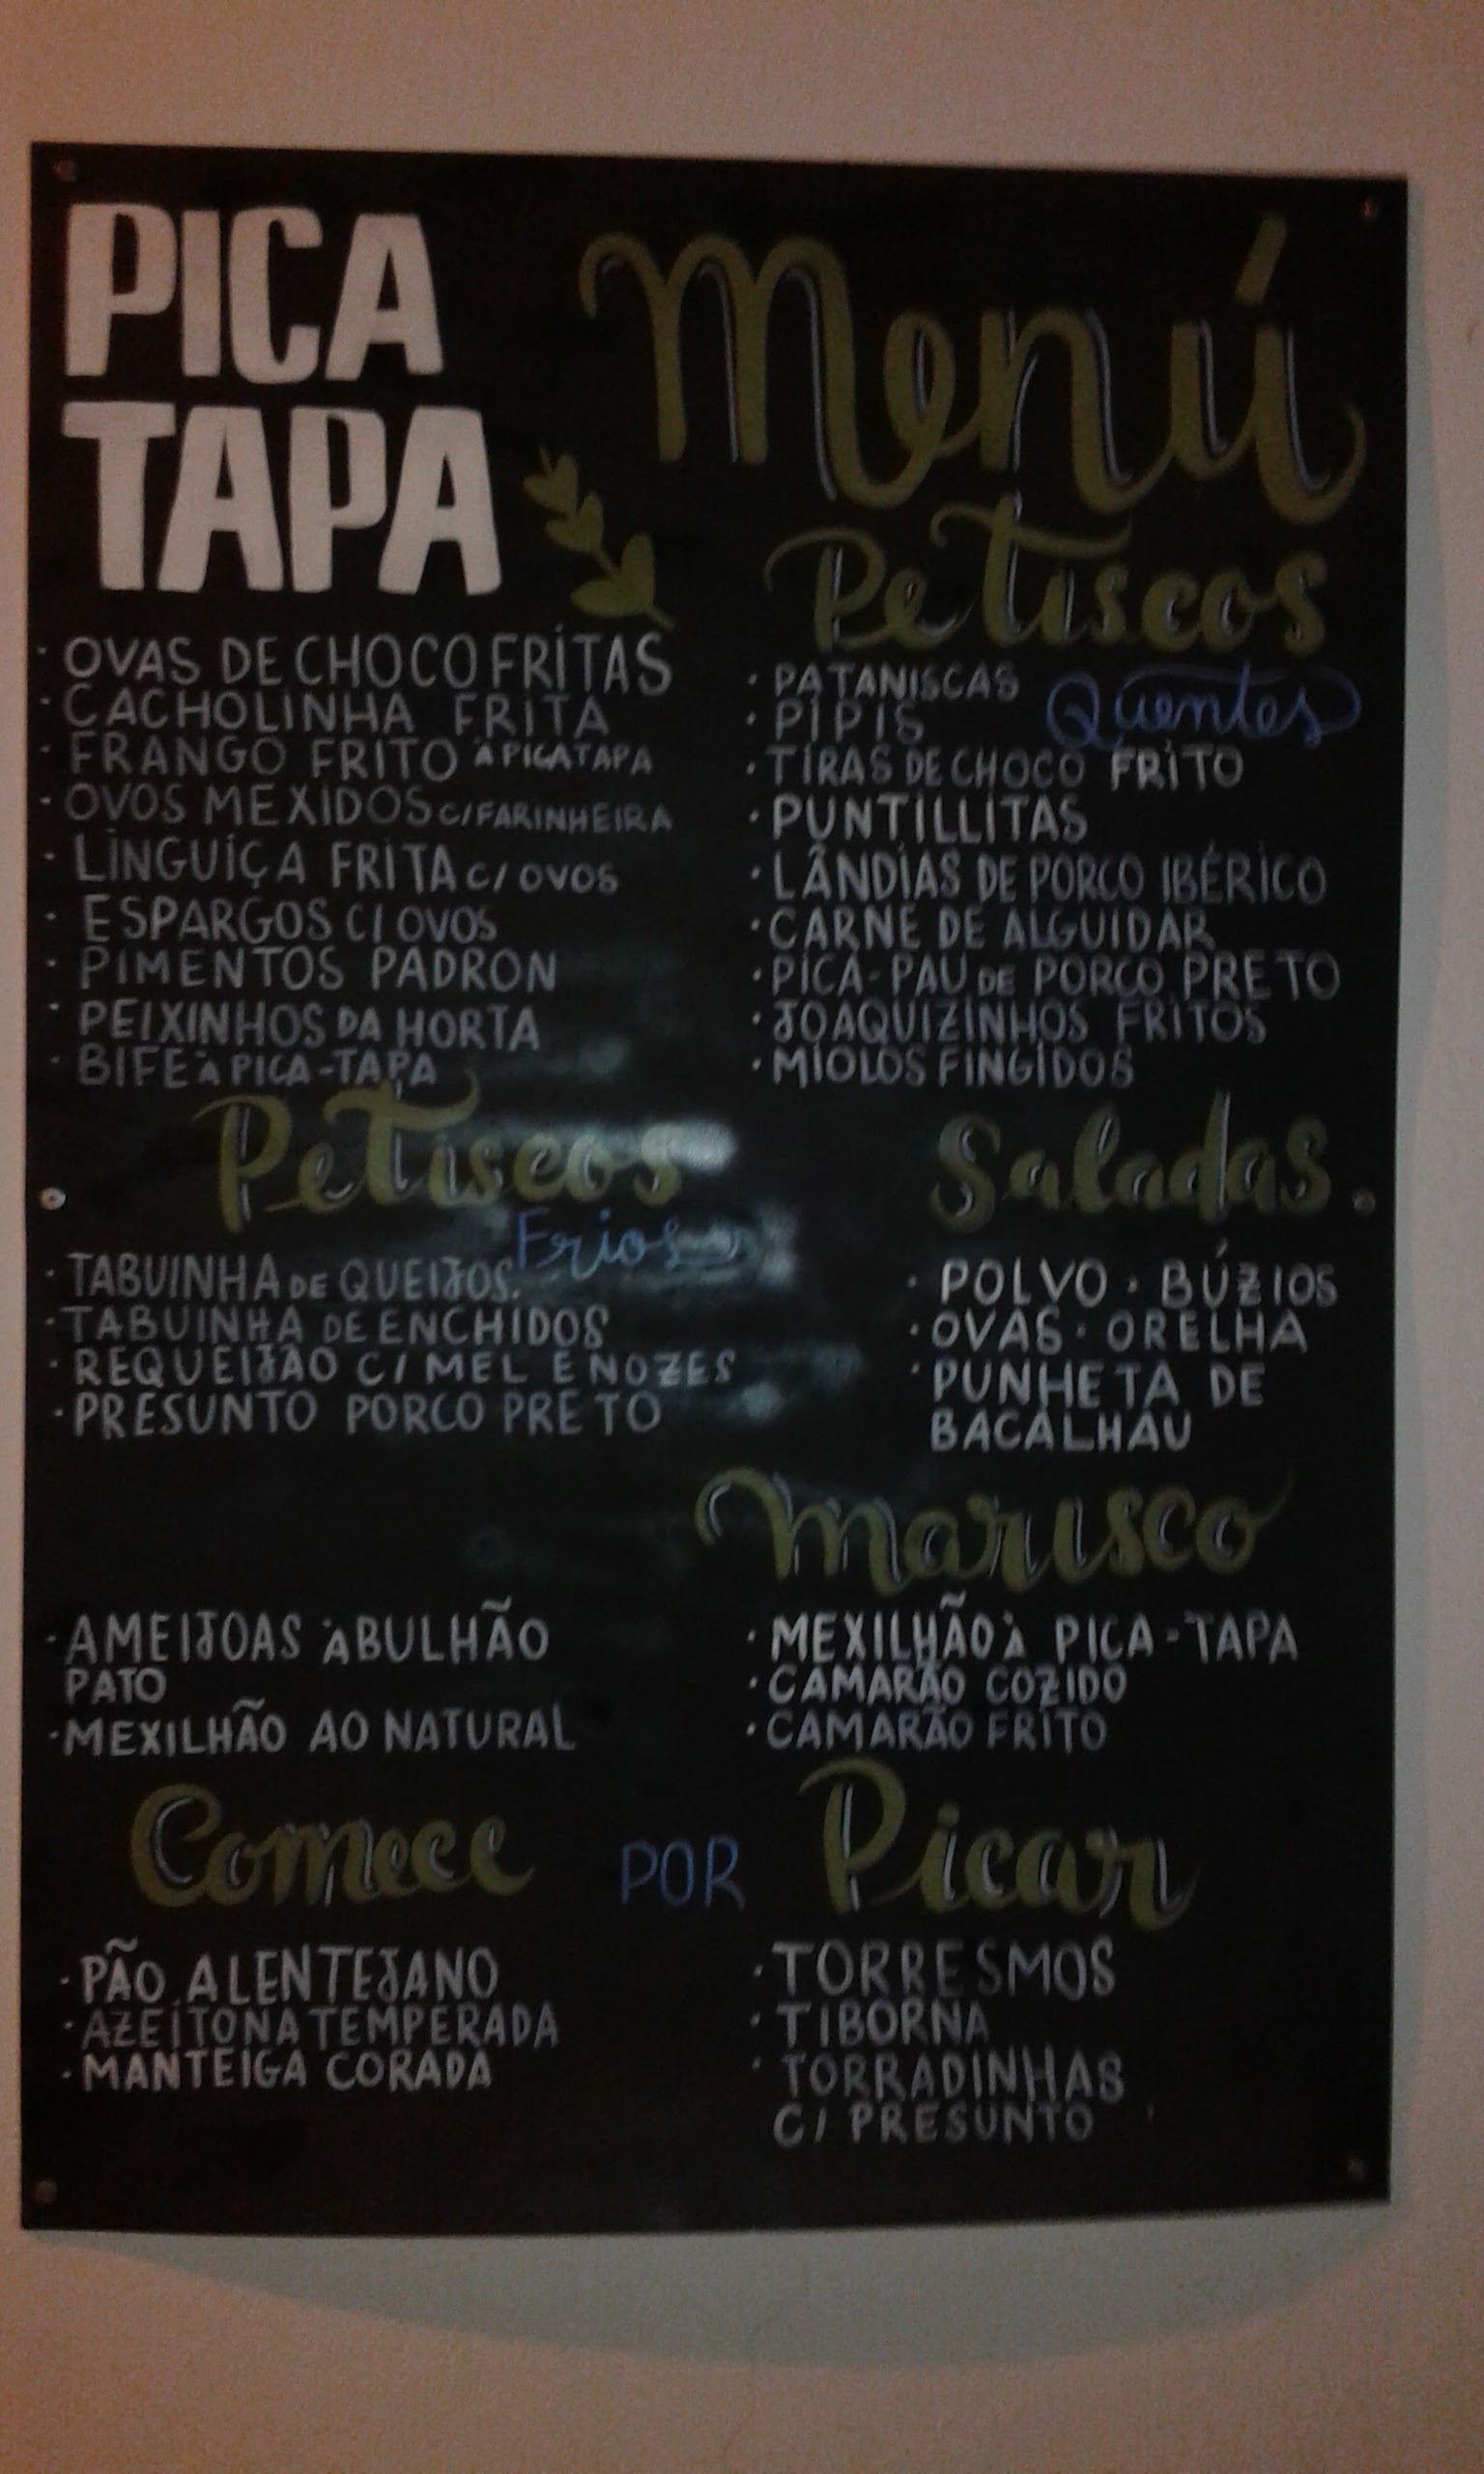 PICA
TAPA
Menú
Petiscos
Quentes
· OVAS DE CHOCO FRITAS
· CACHOLINHA FRITA
· FRANGO FRITO À PICATAPA
· OVOS MEXIDOS C/FARINHEIRA
· LINGUIÇA FRITA C/ OVOS
· ESPARGOS C/ OVOS
· PIMENTOS PADRON
· PEIXINHOS DA HORTA
· BIFE À PICA-TAPA
· PATANISCAS
· PIPIS
· TIRAS DE CHOCO FRITO
· PUNTILLITAS
· LÂNDIAS DE PORCO IBÉRICO
· CARNE DE ALGUIDAR
· PICA-PAU DE PORCO PRETO
· JOAQUIZINHOS FRITOS
· MIOLOS FINGIDOS
Petiscos
Frios
· TABUINHA DE QUEIJOS.
· TABUINHA DE ENCHIDOS
· REQUEIJÃO C/ MEL E NOZES
· PRESUNTO PORCO PRETO
Saladas
· POLVO · BÚZIOS
· OVAS · ORELHA
· PUNHETA DE
BACALHAU
Marisco
· AMEIJOAS À BULHÃO
PATO
· MEXILHÃO AO NATURAL
· MEXILHÃO À PICA-TAPA
· CAMARÃO COZIDO
· CAMARÃO FRITO
Comece POR Picar
· PÃO ALENTEJANO
· AZEITONA TEMPERADA
· MANTEIGA CORADA
· TORRESMOS
· TIBORNA
· TORRADINHAS
C/ PRESUNTO